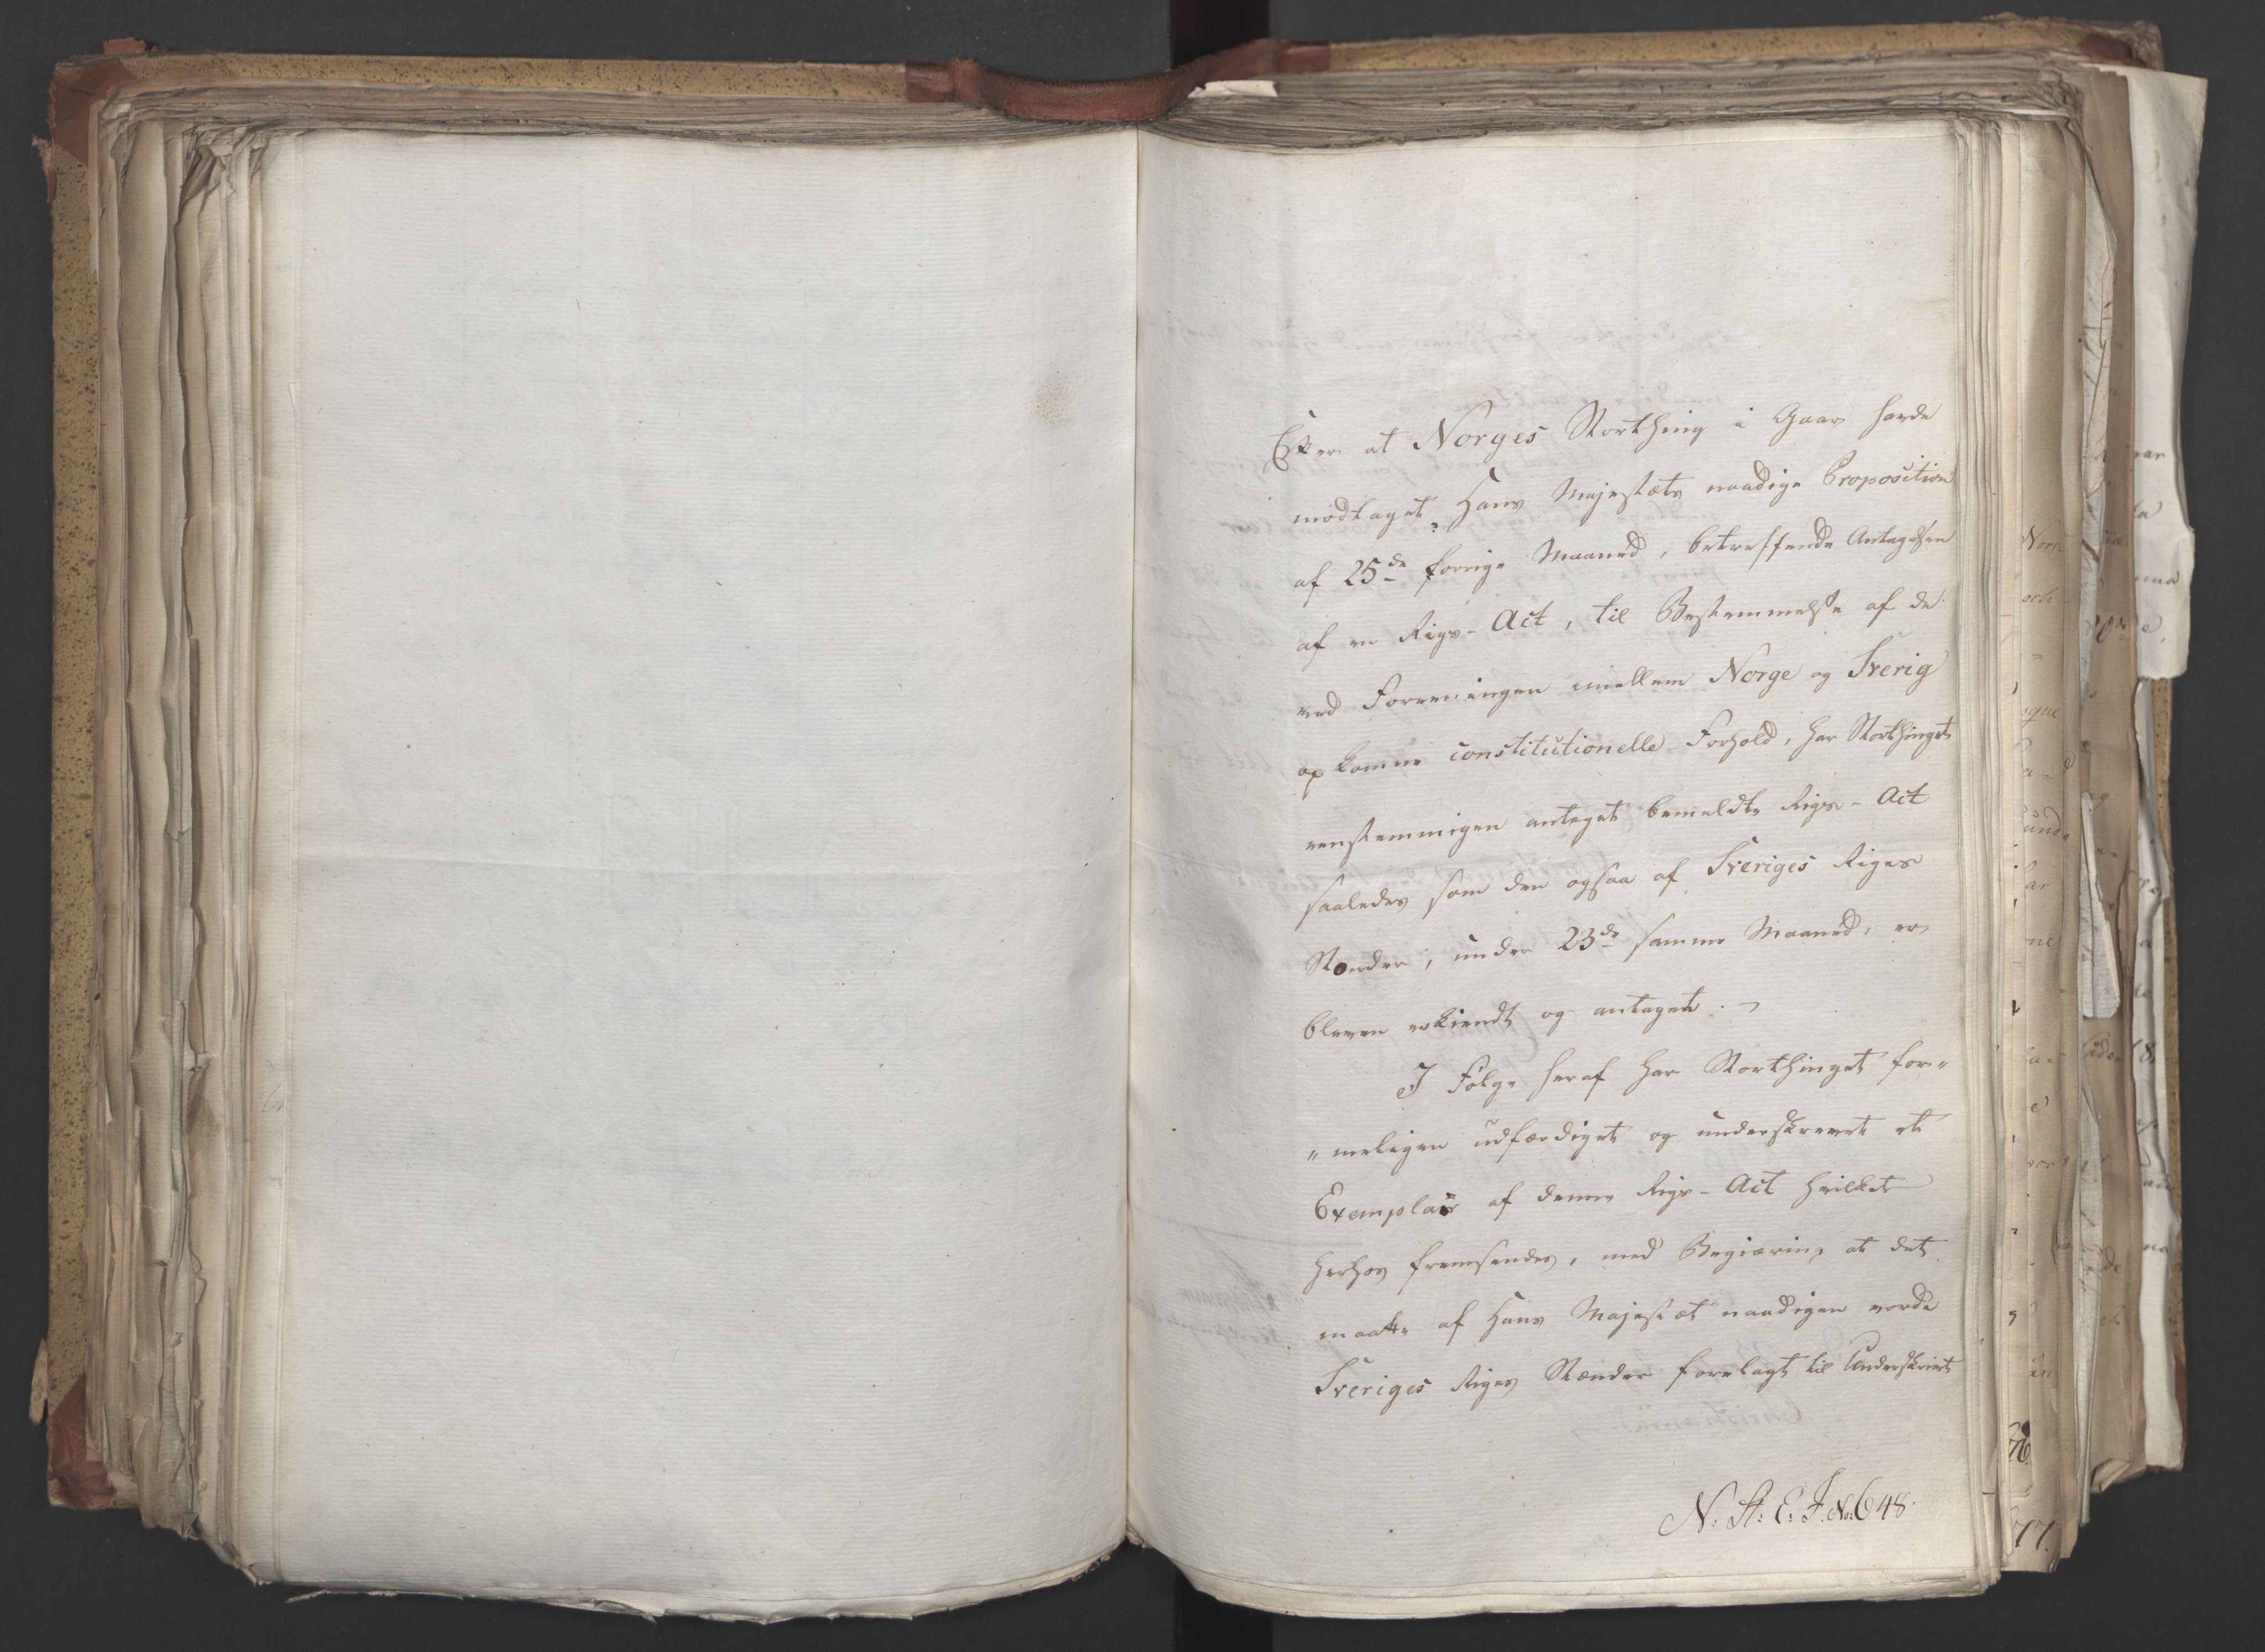 Efter at Norges Storthing i Gaar havde
modtaget Hans Majestæts naadige Proposition
af 25de forrige Maaned, betreffende Antagelsen
af en Rigs-Act, til Bestemmelse af de
ved Foreningen imellem Norge og Sverig
opkomne constitutionelle Forhold, har Storthinget
eenstemmigen antaget bemeldte Rigs-Act
saaledes som den ogsaa af Sveriges Riges
Stænder, under 23de samme Maaned, er
bleven erkiendt og antaget. -
I Følge heraf har Storthinget for„
„meligen udfærdiget og underskrevet et
Exemplar af denne Rigs-Act hvilket
herhos fremsendes, med Begiæring at det
maatte af Hans Majestæt naadigen vorde
Sveriges Riges Stænder forelagt til Underskrivt
N: St: E. J. No: 648.
77.